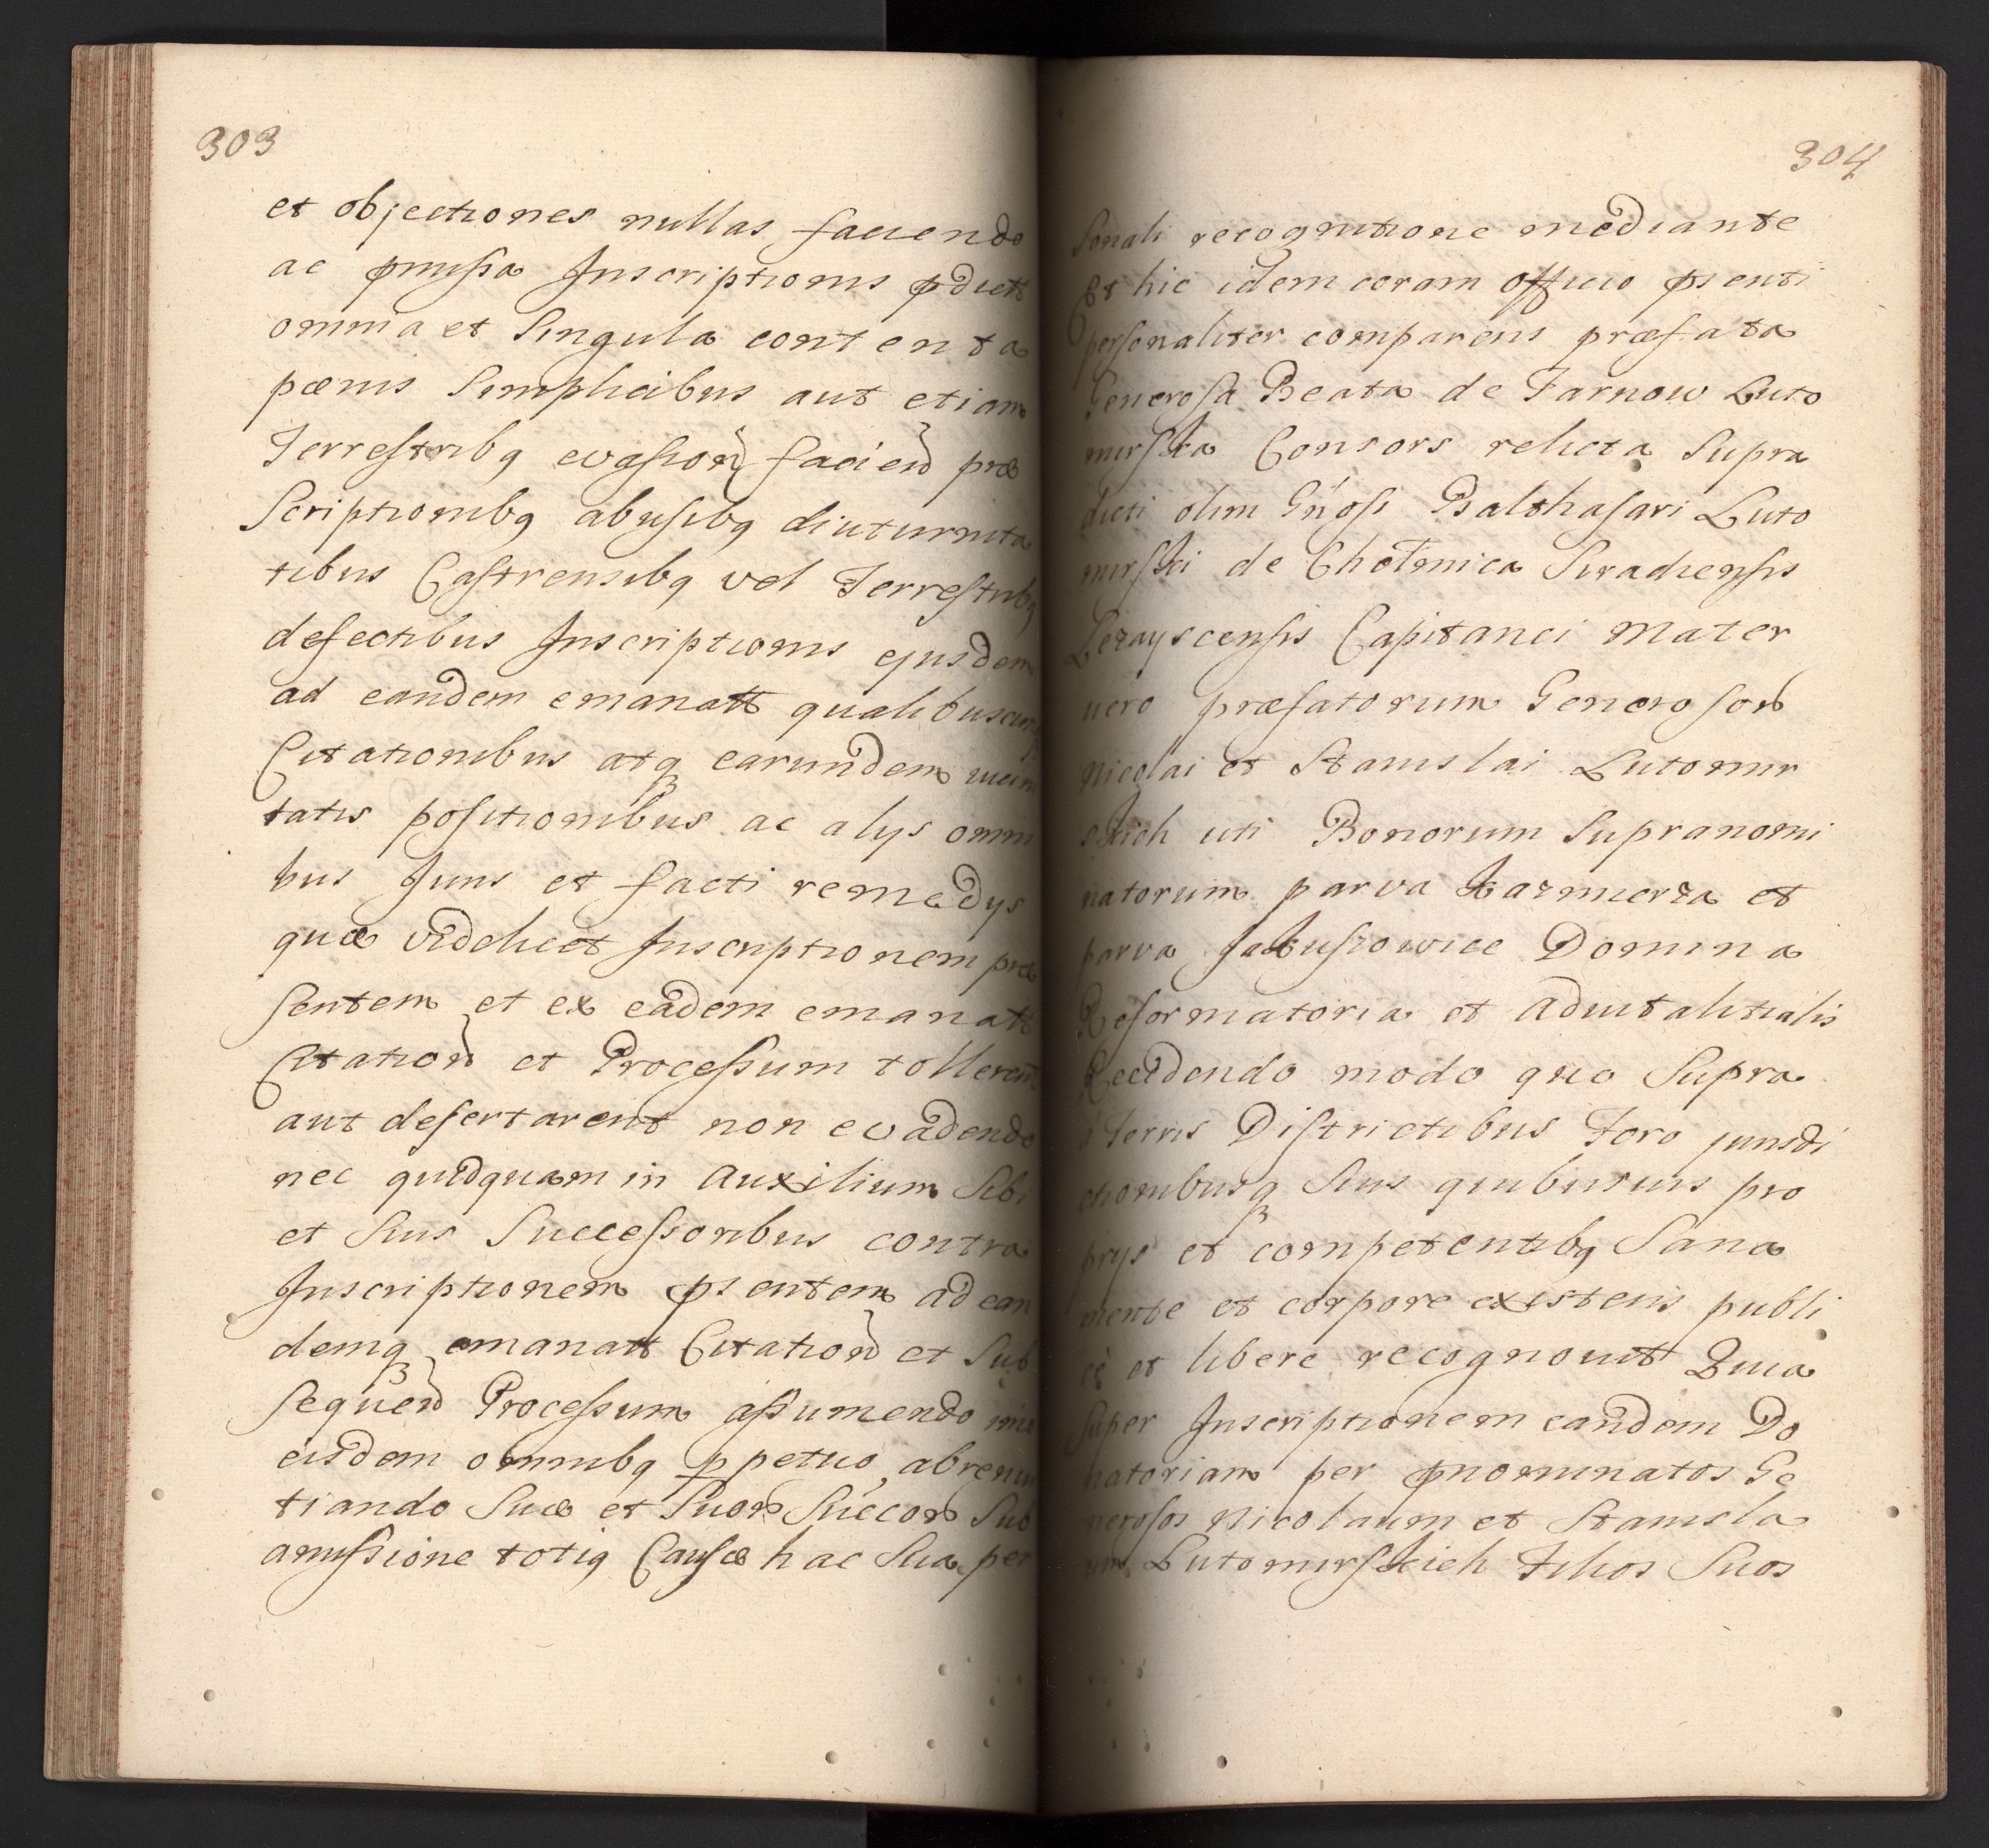 303
et objectiones nullas faciendo
ac pmissa Inscriptionis pdictt
omnia et Singula contenta
pœnis Simplicibus aut etiam
Terrestribq evasion faciend præ
Scriptionibq abusibq diuturnita
tibus Castrensibq vel Terrestribq
defectibus Inscriptionis ejusdem
ad eandem emanatt qualibuscunq
Citationibus atq earundem
tatis positionibus ac alijs omni
bus Juris et facti remedijs
quæ videlicet Inscriptionem præ
sentem et ex eadem emanatt
Citation et Processum tollerent
aut desertarent non evadendo
nec quidquam in Auxilium Sibi
et Suis Successoribus contra
Inscriptionem psentem ad ean
demq emanatt Citation et Sub
sequend Processum assumendo
eisdem omnibq ppetuo abrenun
tiando Suo et Suor Succor Sub
amissione totiq Causæ hac Sua per
304
sonali recognitione mediante
Et hic idem coram Officio psenti
personaliter comparens præfata
Generosa Beata de Tarnow Luto
mirska Consors relicta Supra
dicti olim Gnosi Balthasari Luto
mirski de Cholmica Siradiensis
Lezayscensis Capitanei Mater
vero præfatorum Generosor
Nicolai et Stanislai Lutomir
skich uti Bonorum Supranomi
natorum parva Kazmierza et
parva Jakusiowice Domina
Reformatoria et Advitalitialis
Recedendo modo quo Supra
à Terris Districtibus Foro jurisdi
ctionibusq Suis quibusvis pro
prijs et competentibq Sana
mente et corpore existens publi
cè et libere recognovit Quia
Super Inscriptionem eandem Do
natoriam per pnominatos Ge
nerosos Nicolaum et Stanisla
um Lutomirskich Filios Suos